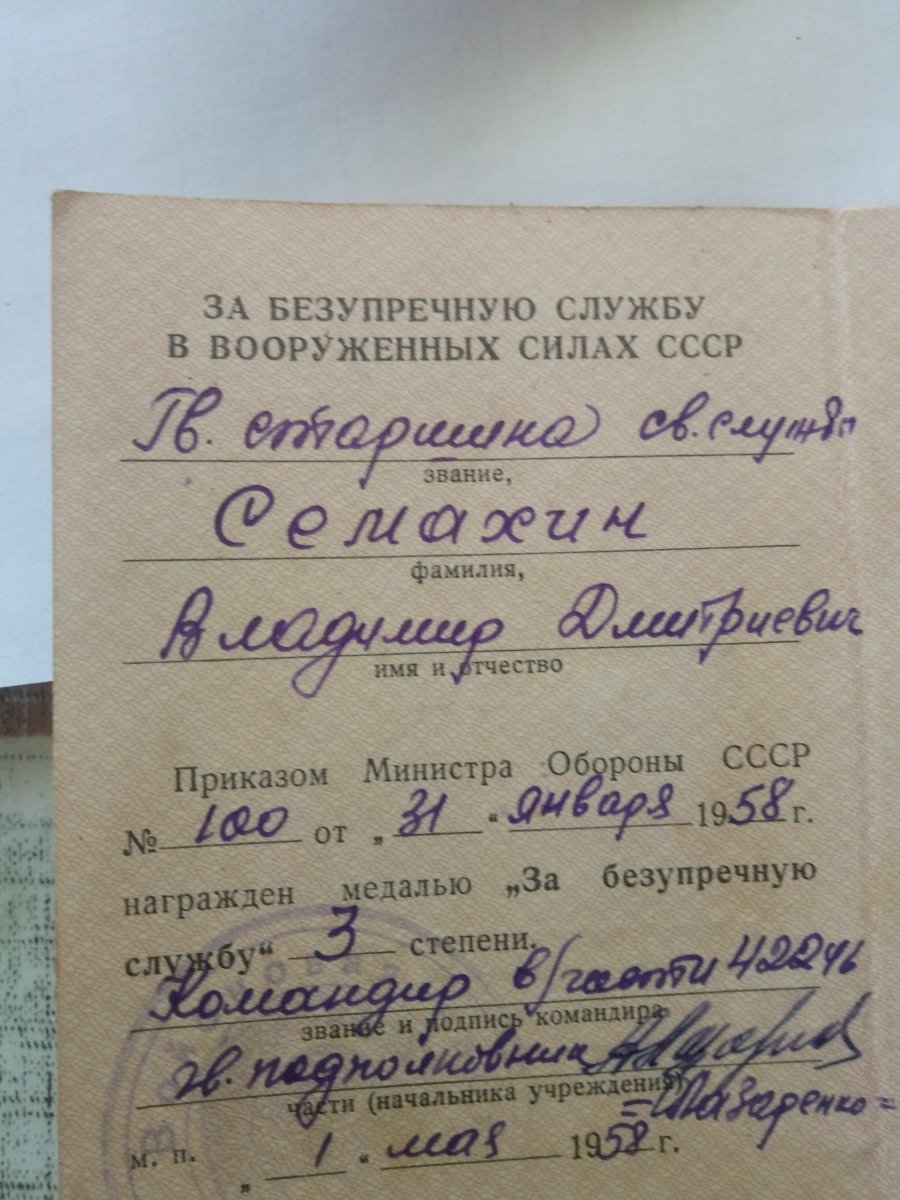 ЗА БЕЗУПРЕЧНУЮ СЛУЖБУ
В ВООРУЖЕННЫХ СИЛАХ СССР
Гв. старшина св. службы
звание,
Семахин
фамилия,
Владимир Дмитриевич
имя и отчество
Приказом Министра Обороны СССР
№ 100 от „31“ января 1958 г.
награжден медалью „За безупречную
службу“ 3 степени.
Командир в/части 42246
звание и подпись командира
гв. подполковник
части (начальника учреждения)
м. п.
„ 1 “ мая 1958 г.